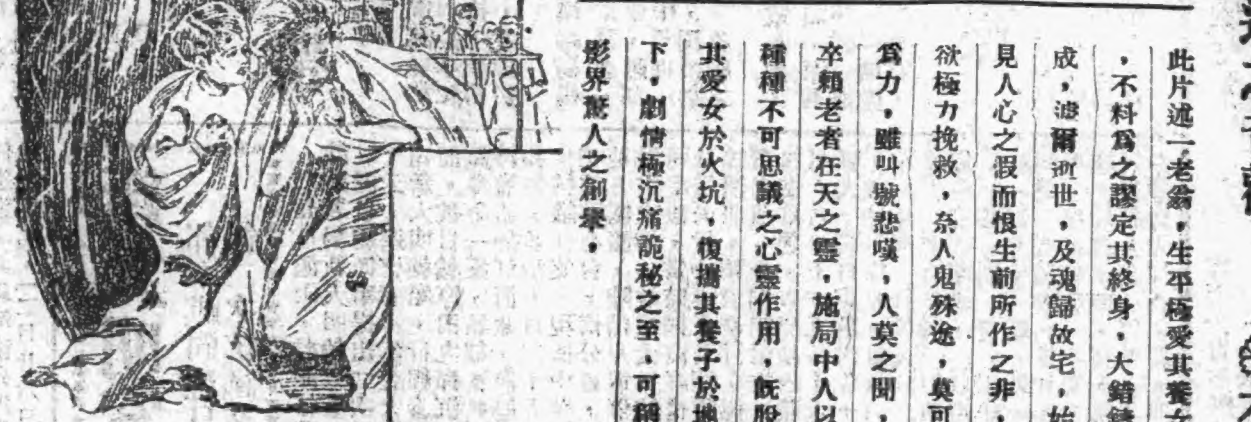 此片述一老翁，生平極愛其養女
，不料爲之謬定其終身，大錯鑄
成，遽爾逝世，及魂歸故宅，始
見人心之假而恨生前所作之非，
欲極力挽救，奈人鬼殊途，莫可
爲力，雖叫號悲嘆，人莫之聞，
卒賴老者在天之靈，施局中人以
種種不可思議之心靈作用，旣脫
其愛女於火坑，復攜其養子於地
下，劇情極沉痛詭秘之至，可稱
影界驚人之創舉，